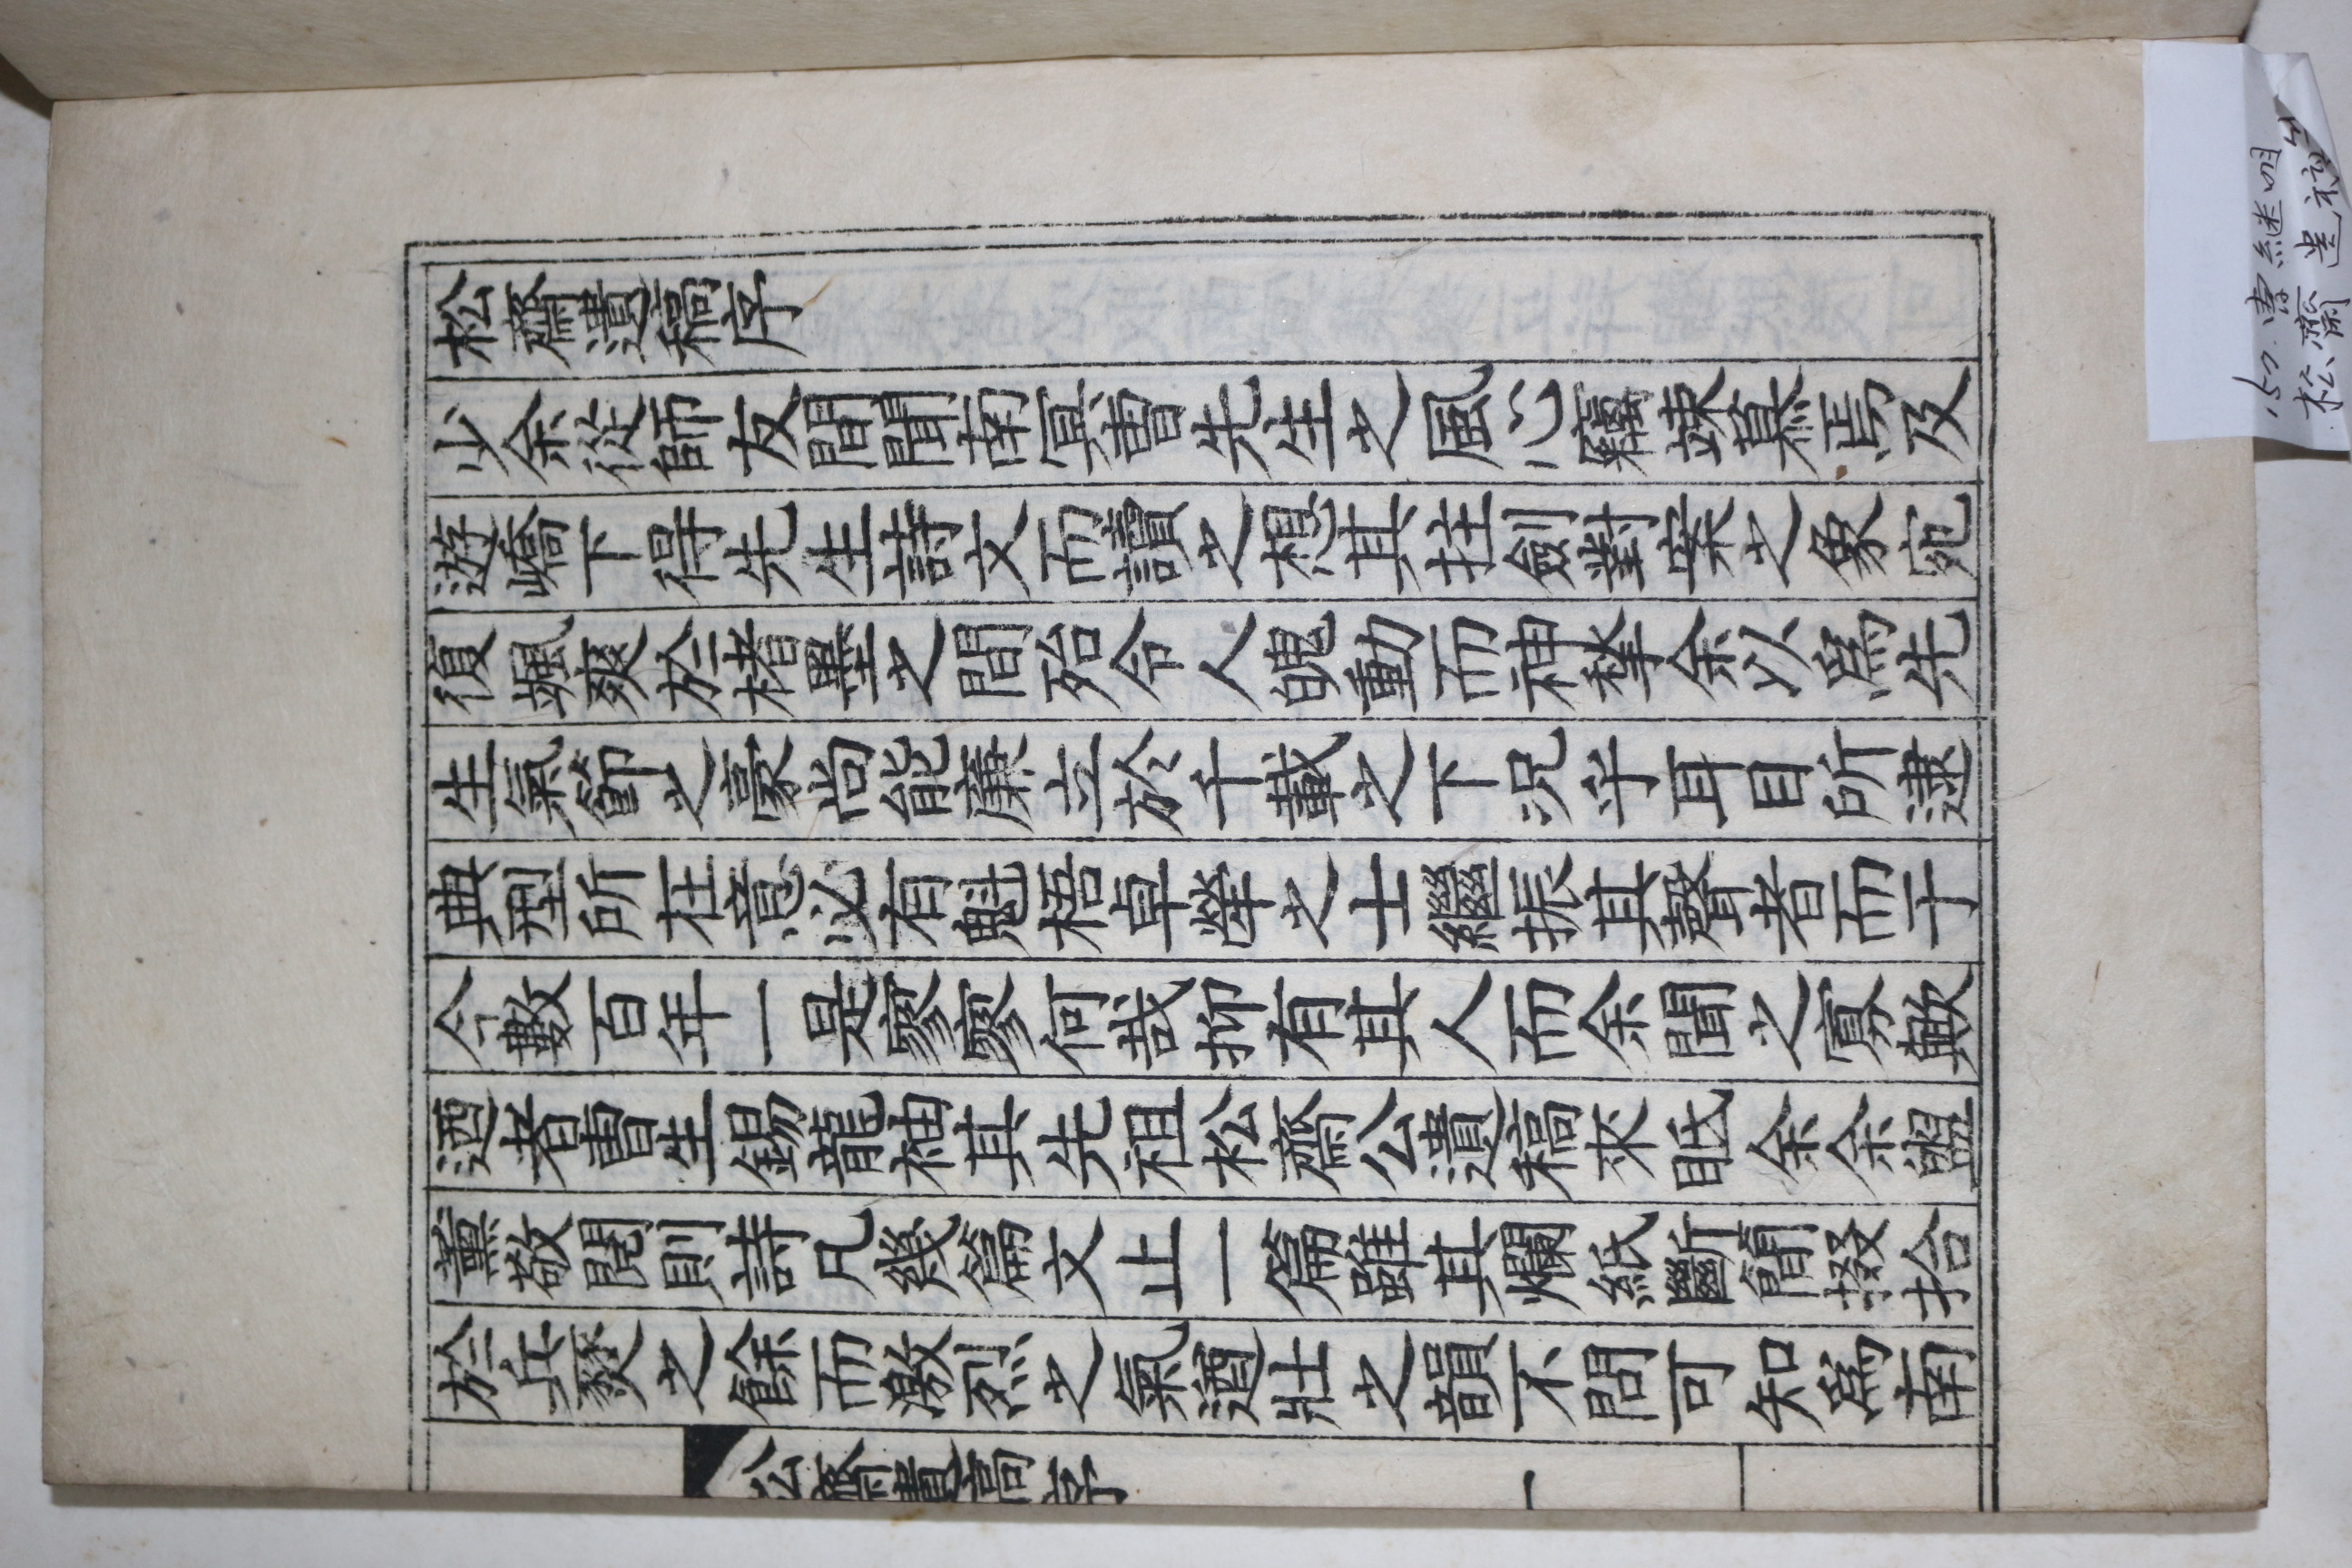 松齋遺稿序
少余從師友間聞南冥曺先生之風心竊竦慕焉及
遊嶠下得先生詩文而讀之想其拄劍對案之象宛
復颯爽於楮墨之間殆令人魄動而神擎余以爲先
生氣節之豪尚能廉立於千載之下况乎耳目所逮
典型所在意必有魁梧卓犖之士繼振其聲者而于
今數百年一是寥寥何哉抑有其人而余聞之寡歟
迺者曺生錫龍袖其先祖松齋公遺稿來眡余余盥
薰敬閱則詩凡幾篇文止一篇雖其爛紙斷簡掇拾
於兵燹之餘而激烈之氣遒壯之韻不問可知爲南
松齋遺稿序
一
157. 曺継明
松齋遺稿